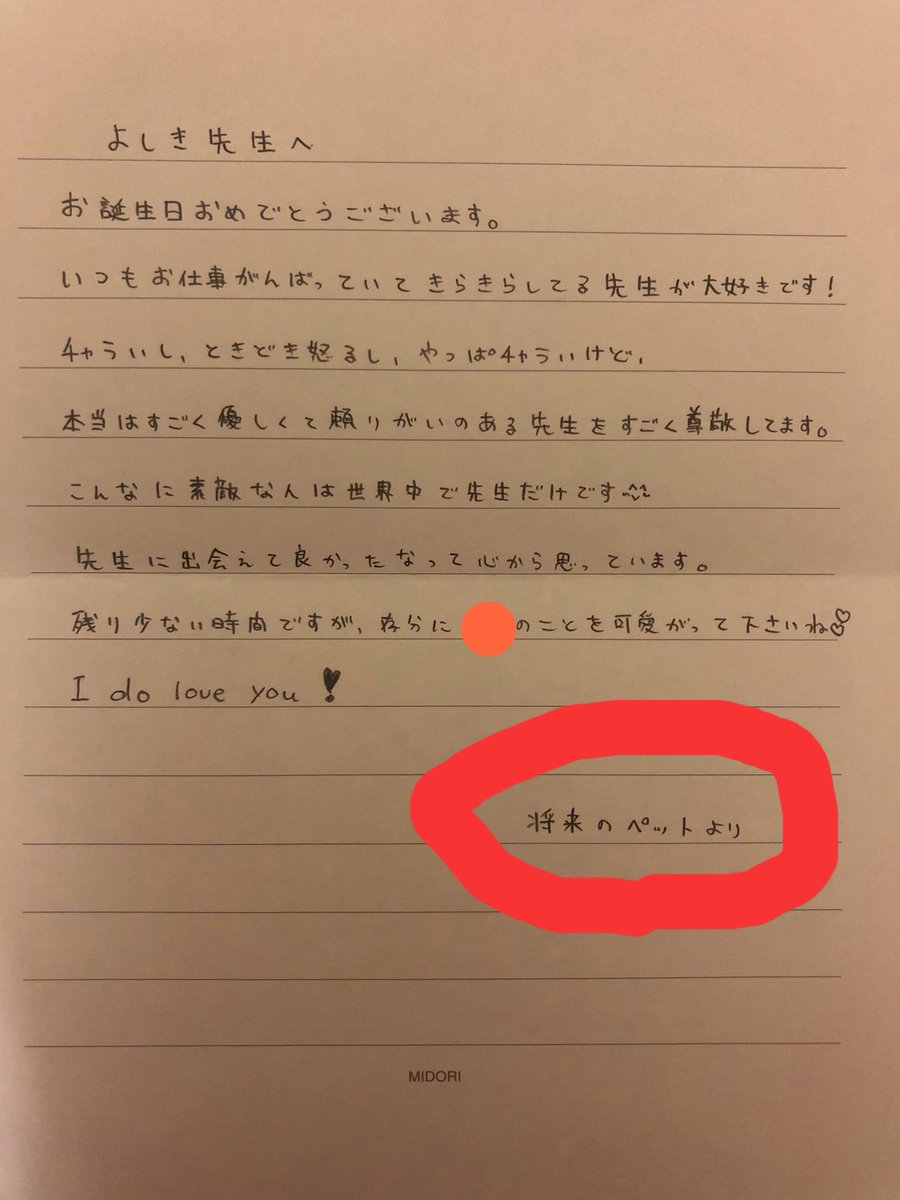 よしき先生へ
お誕生日おめでとうございます。
いつもお仕事がんばっていてきらきらしてる先生が大好きです！
チャらいし、ときどき怒るし、やっぱチャらいけど、
本当はすごく優しくて頼りがいのある先生をすごく尊敬してます。
こんなに素敵な人は世界中で先生だけです^^
先生に出会えて良かったなって心から思っています。
残り少ない時間ですが、存分に
のことを可愛がって下さいね
I do love you !
将来のペットより
MIDORI